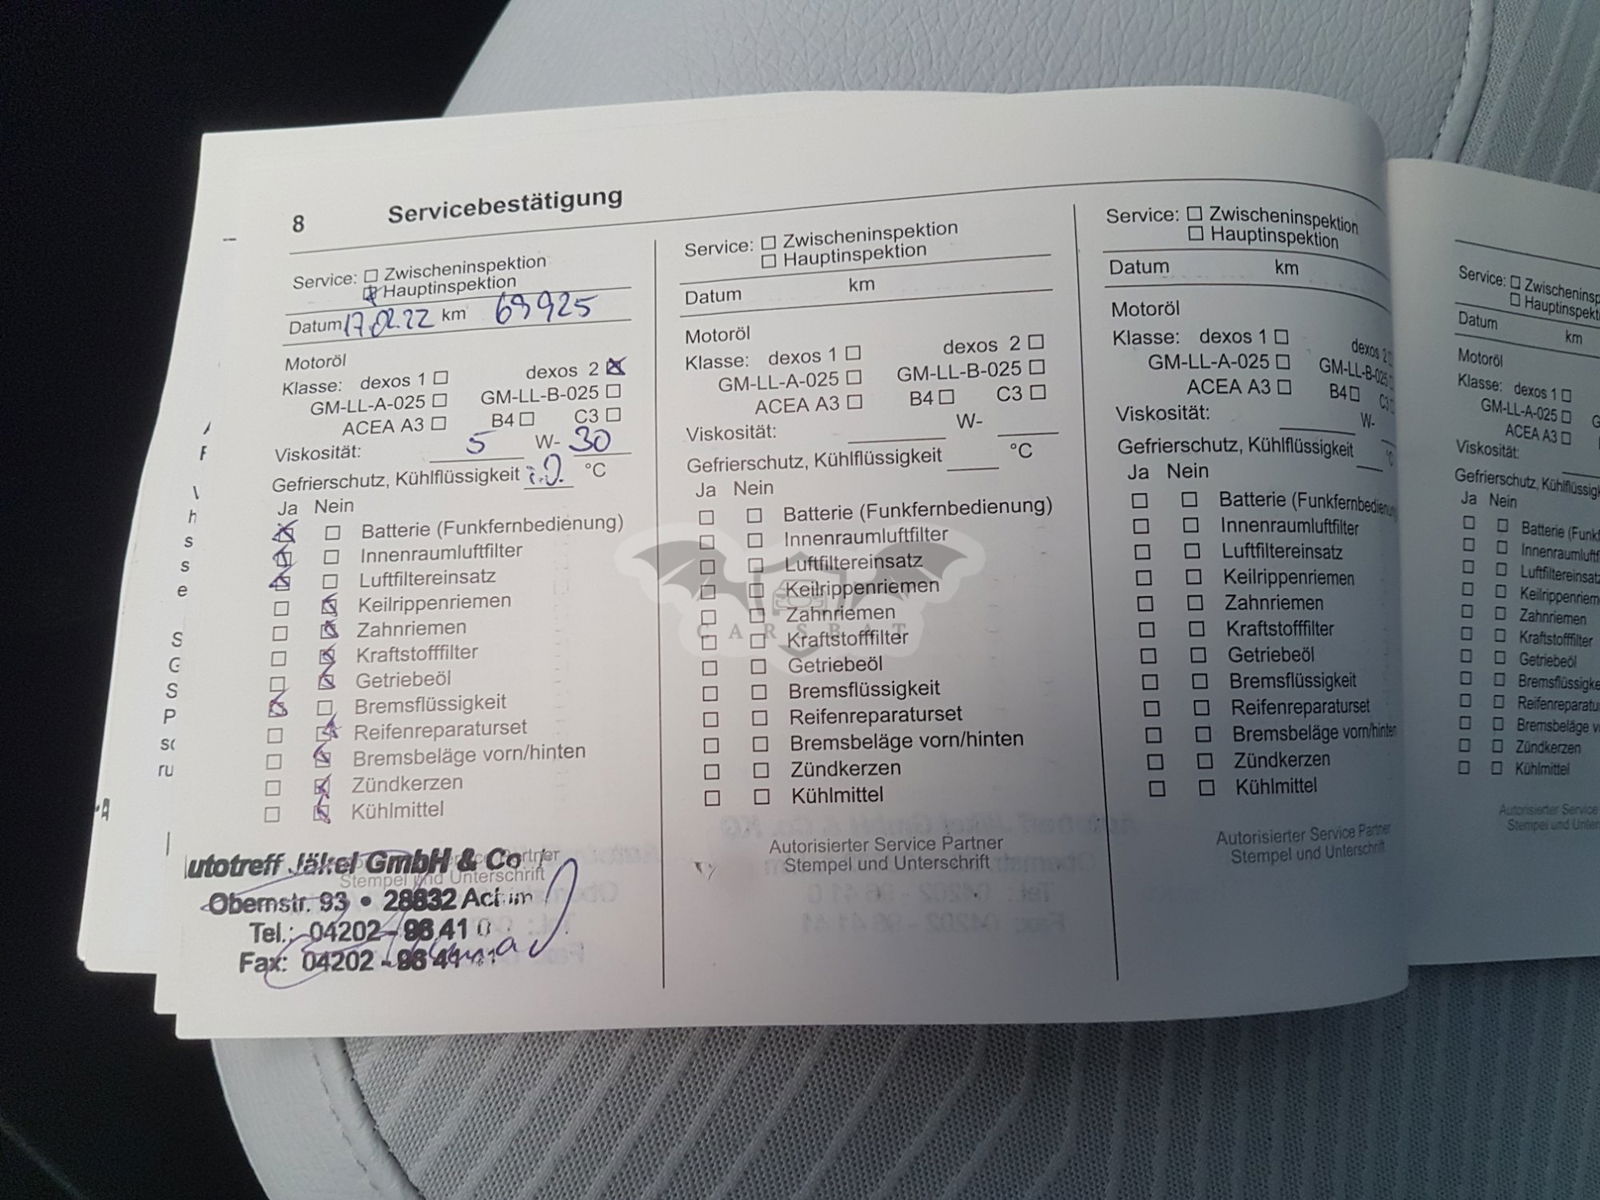 8 Servicebestätigung
Service: Zwischeninspektion
Hauptinspektion
Datum 17.02.22 km 69925
Motoröl
Klasse: dexos 1 dexos 2
GM-LL-A-025 GM-LL-B-025
ACEA A3 B4 C3
Viskosität: 5 W- 30
Gefrierschutz, Kühlflüssigkeit i.O. °C
Ja Nein
Batterie (Funkfernbedienung)
Innenraumluftfilter
Luftfiltereinsatz
Keilrippenriemen
Zahnriemen
Kraftstofffilter
Getriebeöl
Bremsflüssigkeit
Reifenreparaturset
Bremsbeläge vorn/hinten
Zündkerzen
Kühlmittel
Stempel und Unterschrift
utotreff Jäkel GmbH & Co
Obernstr. 93 • 28832 Achim
Tel.: 04202 - 96 41 0
Fax: 04202 - 96 41
Service: Zwischeninspektion
Hauptinspektion
Datum km
Motoröl
Klasse: dexos 1 dexos 2
GM-LL-A-025 GM-LL-B-025
ACEA A3 B4 C3
Viskosität: W-
Gefrierschutz, Kühlflüssigkeit °C
Ja Nein
Batterie (Funkfernbedienung)
Innenraumluftfilter
Luftfiltereinsatz
Keilrippenriemen
Zahnriemen
Kraftstofffilter
Getriebeöl
Bremsflüssigkeit
Reifenreparaturset
Bremsbeläge vorn/hinten
Zündkerzen
Kühlmittel
Autorisierter Service Partner
Stempel und Unterschrift
CARSBAT
Service: Zwischeninspektion
Hauptinspektion
Datum km
Motoröl
Klasse: dexos 1 dexos 2
GM-LL-A-025 GM-LL-B-025
ACEA A3 B4 C3
Viskosität: W-
Gefrierschutz, Kühlflüssigkeit °C
Ja Nein
Batterie (Funkfernbedienung
Innenraumluftfilter
Luftfiltereinsatz
Keilrippenriemen
Zahnriemen
Kraftstofffilter
Getriebeöl
Bremsflüssigkeit
Reifenreparaturset
Bremsbeläge vorn/hinten
Zündkerzen
Kühlmittel
Autorisierter Service Partner
Stempel und Unterschrift
Service: Zwischeninsp
Hauptinspekt
Datum km
Motoröl
Klasse: dexos 1
GM-LL-A-025
ACEA A3
Viskosität:
Gefrierschutz, Kühlflüssig
Ja Nein
Batterie (Funkf
Innenraumluftf
Luftfiltereinsat
Keilrippenriem
Zahnriemen
Kraftstofffilter
Getriebeöl
Bremsflüssigke
Reifenreparatu
Bremsbeläge vo
Zündkerzen
Kühlmittel
Autorisierter Service
Stempel und Unters